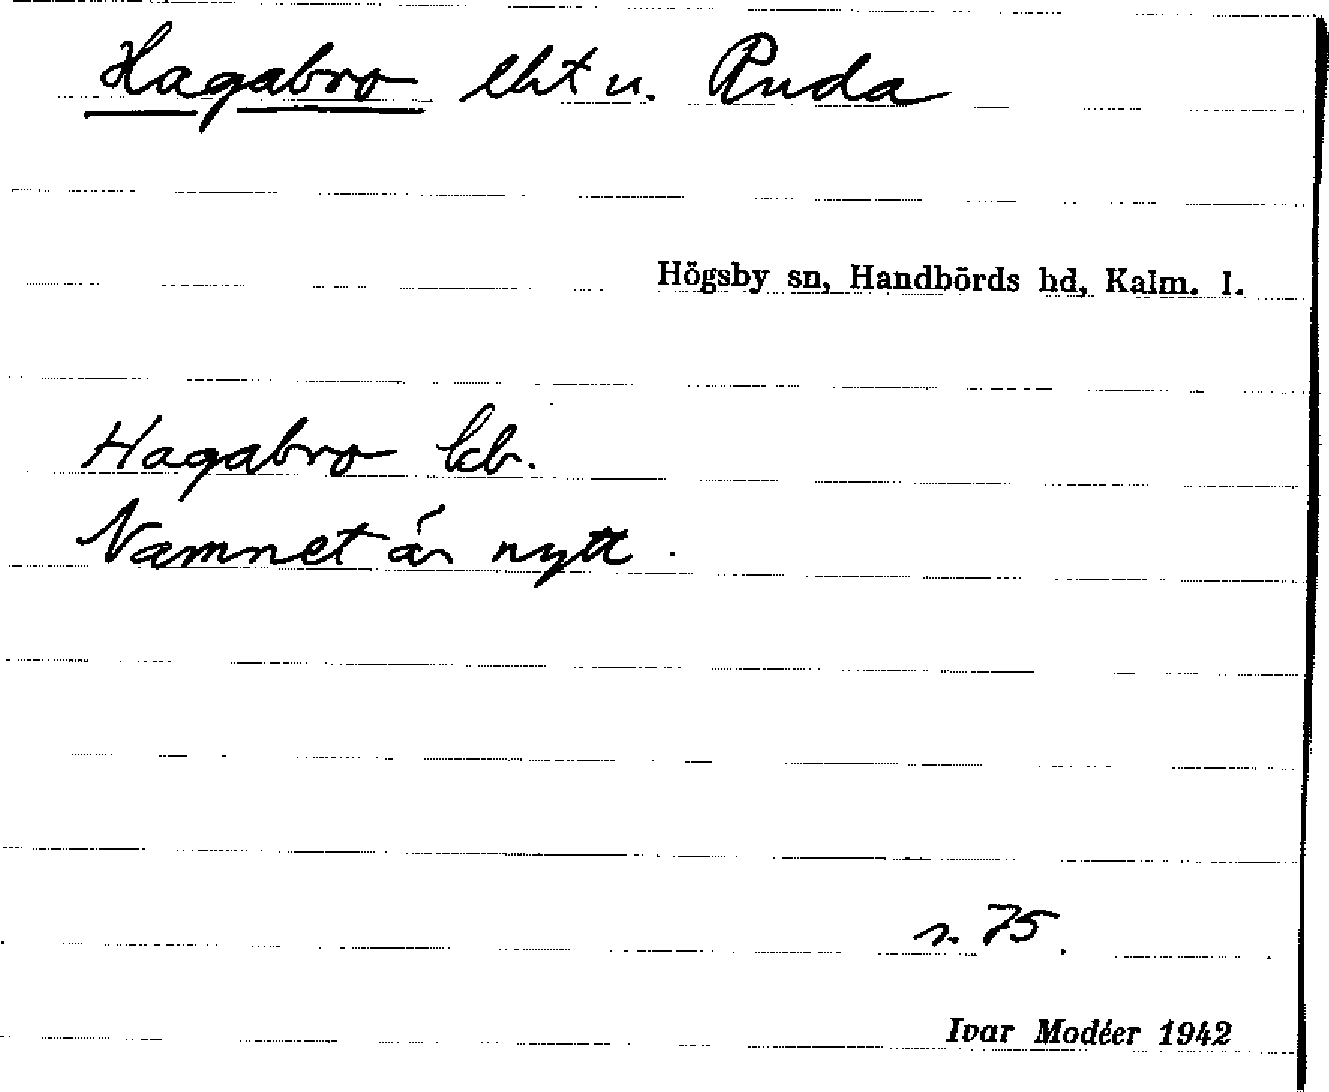 Hagabro lht u. Ruda
Högsby sn, Handbörds hd, Kalm. l.
Hagabro
Namnet är nytt.
s. 75.
Ivar Modéer 1942